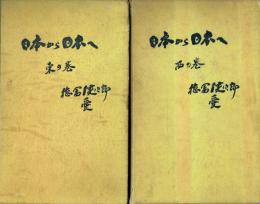 日本から日本へ
東の巻
徳冨健次郎
愛
日本から日本へ
西の巻
徳冨健次郎
愛